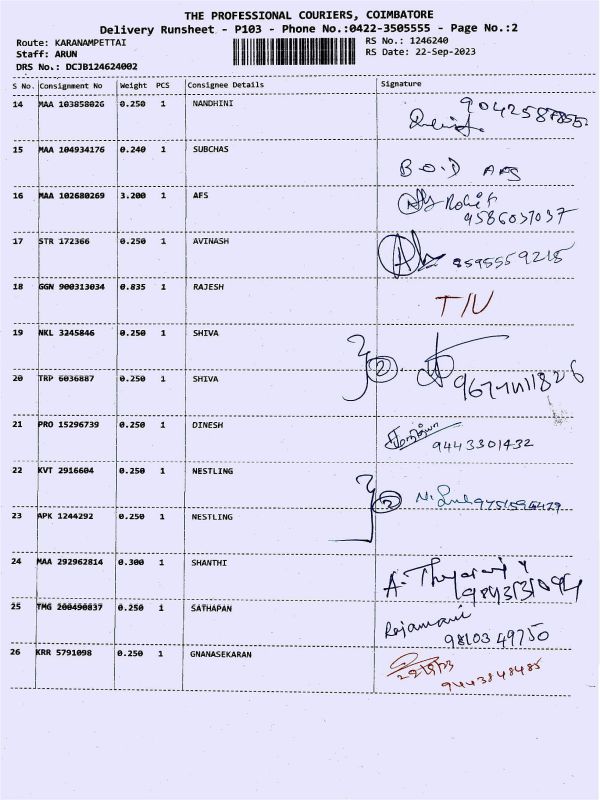 THE PROFESSIONAL COURIERS, COIMBATORE
Delivery Runsheet - P103 - Phone No.:0422-3505555 - Page No.:2
Route: KARANAMPETTAI RS No.: 1246240
Staff: ARUN RS Date: 22-Sep-2023
DRS No.: DCJB124624002
S No. Consignment No Weight PCS Consignee Details Signature
14 MAA 103858026 0.250 1 NANDHINI
15 MAA 104934176 0.240 1 SUBCHAS B.O.D AFS
16 MAA 102680269 3.200 1 AFS Rohit
9586037037
17 STR 172366 0.250 1 AVINASH 8595559215
18 GGN 900313034 0.835 1 RAJESH T/U
19 NKL 3245846 0.250 1 SHIVA 2
20 TRP 6036887 0.250 1 SHIVA
21 PRO 15296739 0.250 1 DINESH
9443301432
22 KVT 2916604 0.250 1 NESTLING 2
23 APK 1244292 0.250 1 NESTLING
24 MAA 292962814 0.300 1 SHANTHI
25 TMG 200490837 0.250 1 SATHAPAN Rajamani
9810349750
26 KRR 5791098 0.250 1 GNANASEKARAN 22/9/23
9443848485